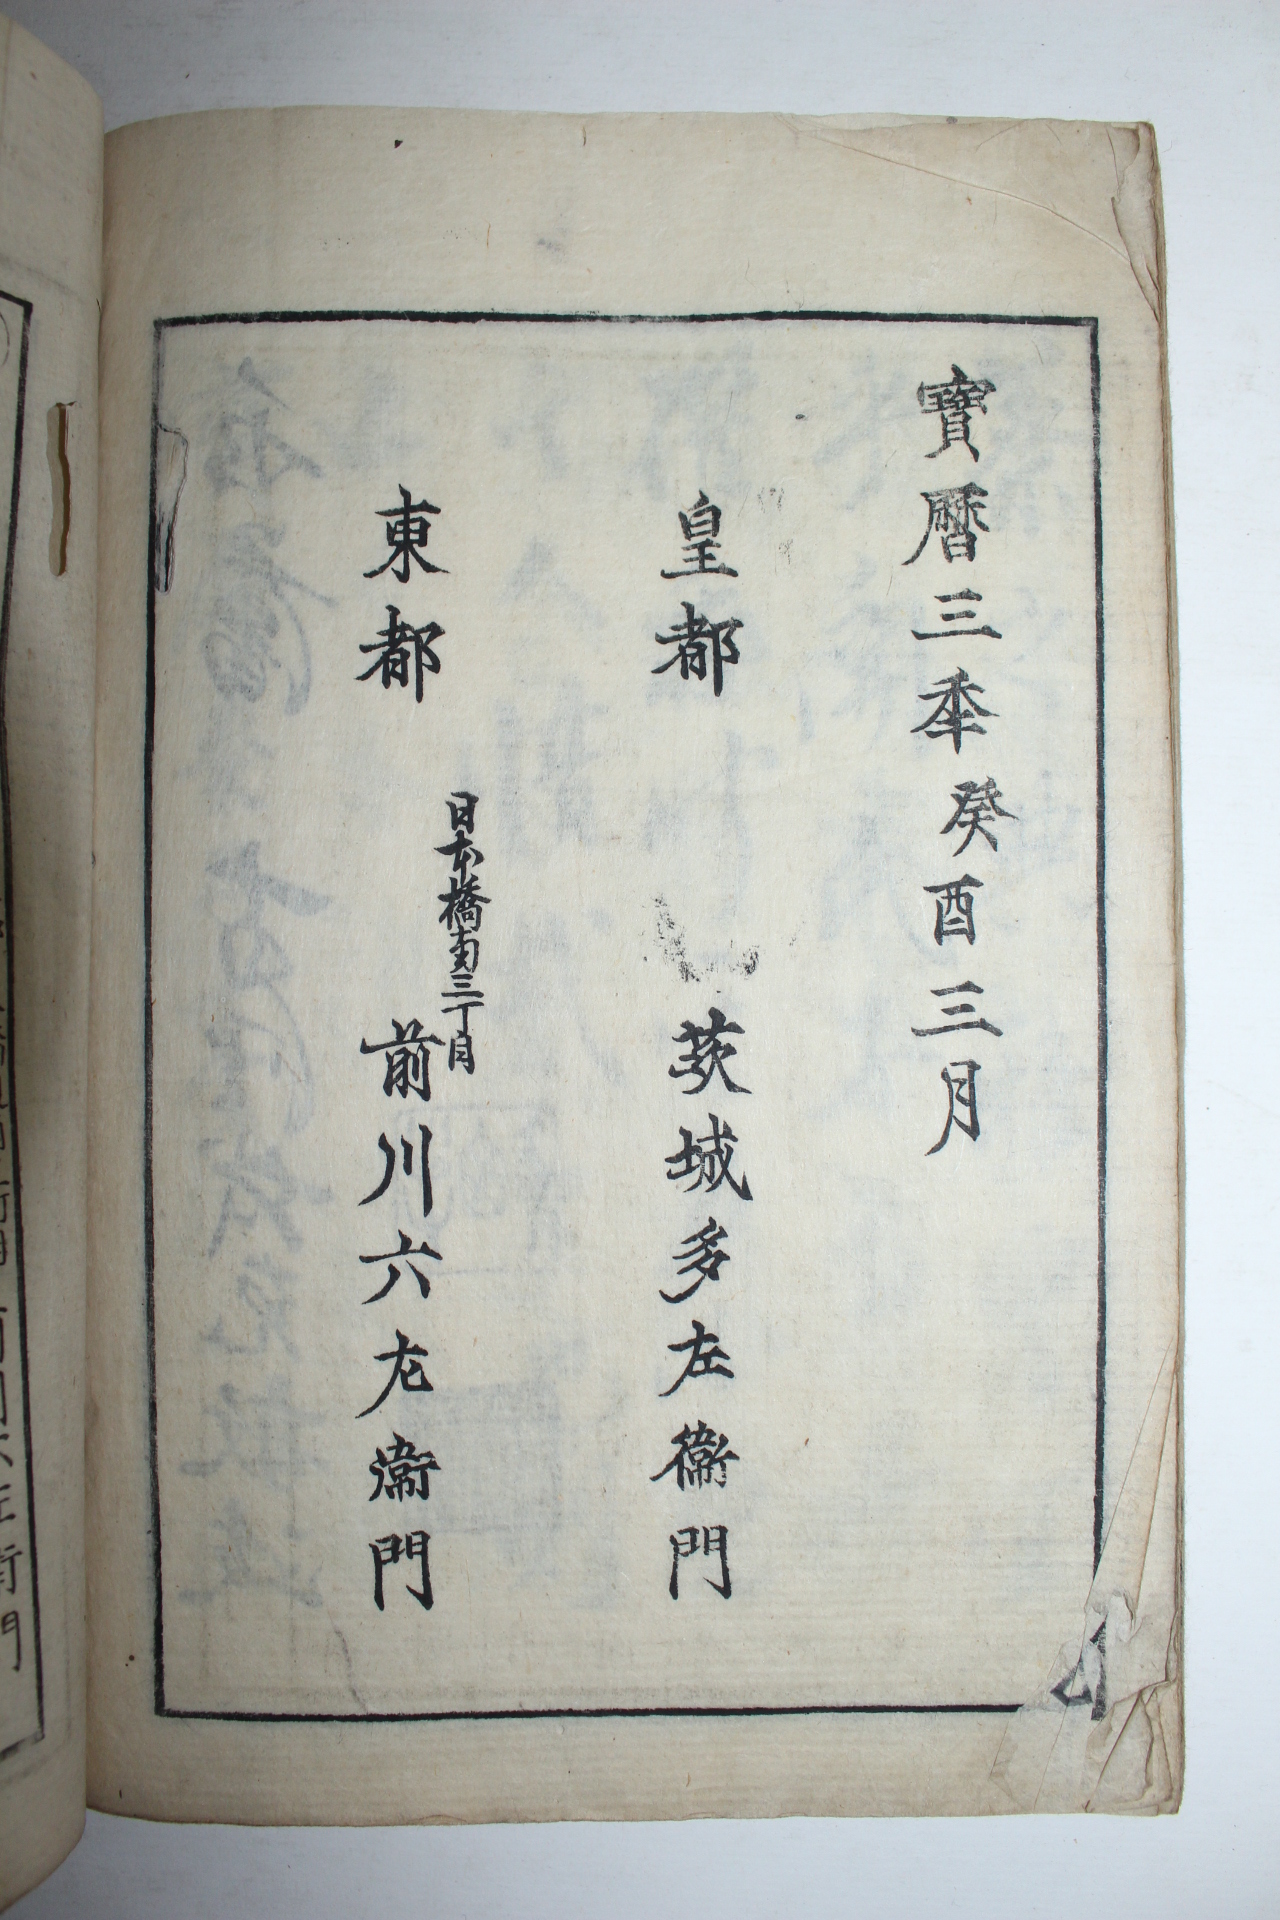 寶暦三年癸酉三月
皇都　茨城多左衛門
日本橋南三丁目
東都　前川六左衛門